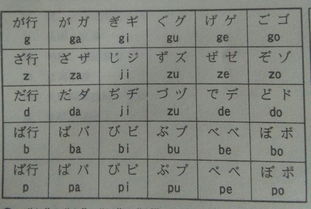 が行 がガ ぎギ ぐグ げゲ ごゴ
g ga gi gu ge go
ざ行 ざザ じジ ずズ ぜゼ ぞゾ
z za ji zu ze zo
だ行 だダ ぢヂ づヅ でデ どド
d da ji zu de do
ば行 ばバ びビ ぶブ べベ ぼボ
b ba bi bu be bo
ぱ行 ぱパ ぴピ ぷプ ぺペ ぽポ
p pa pi pu pe po